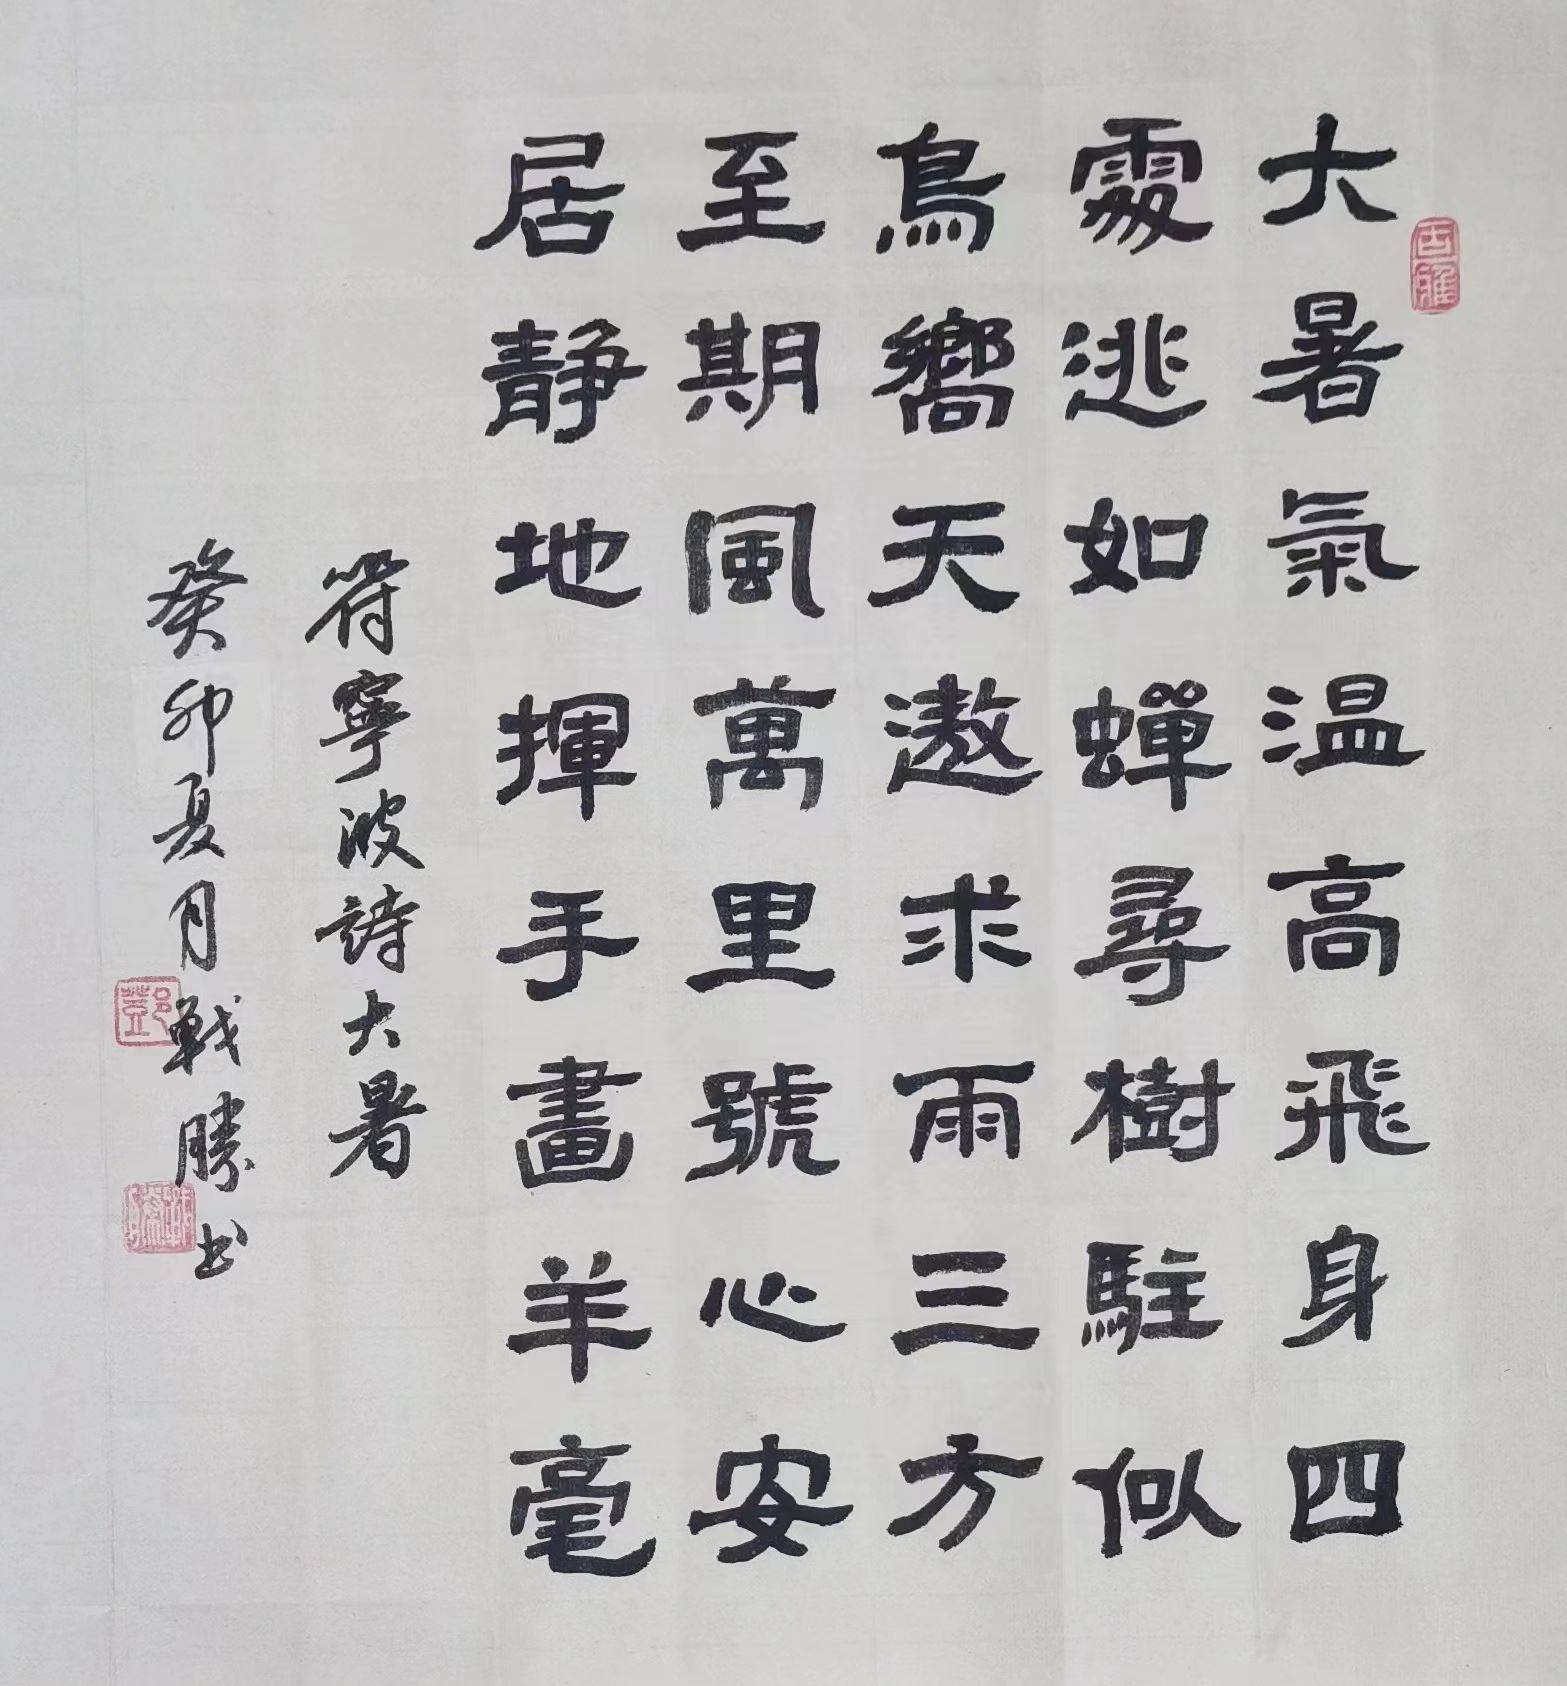 大暑氣温高飛身四
處逃如蟬尋樹駐似
鳥嚮天遨求雨三方
至期風萬里號心安
居静地揮手畫羊毫
符寧波詩大暑
癸卯夏月戰勝书
古雅
鄧
戰勝